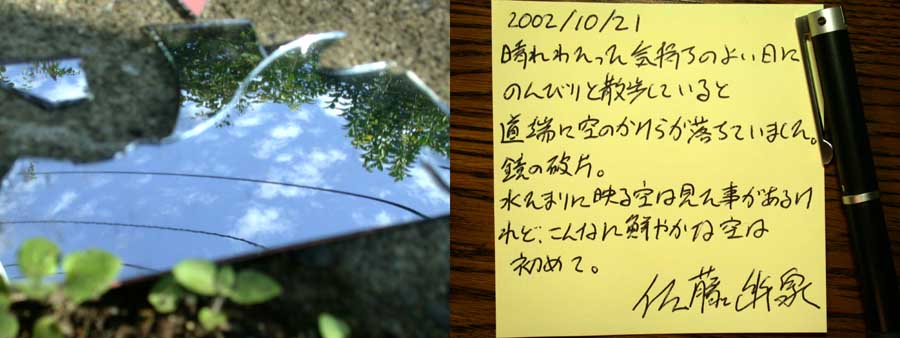 2002/10/21
晴れわたった気持ちのよい日に
のんびりと散歩していると
道端に空のかけらが落ちていました。
鏡の破片。
水たまりに映る空は見た事があるけ
れど、こんなに鮮やかな空は
初めて。
佐藤